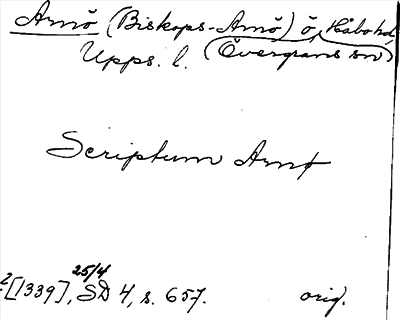 Arnö (Biskops-Arnö) ö, Håbo hd,
Upps. l. (Övergrans sn)
Scriptum Arnø
[1339], 25/4 SD 4, s. 657. orig.